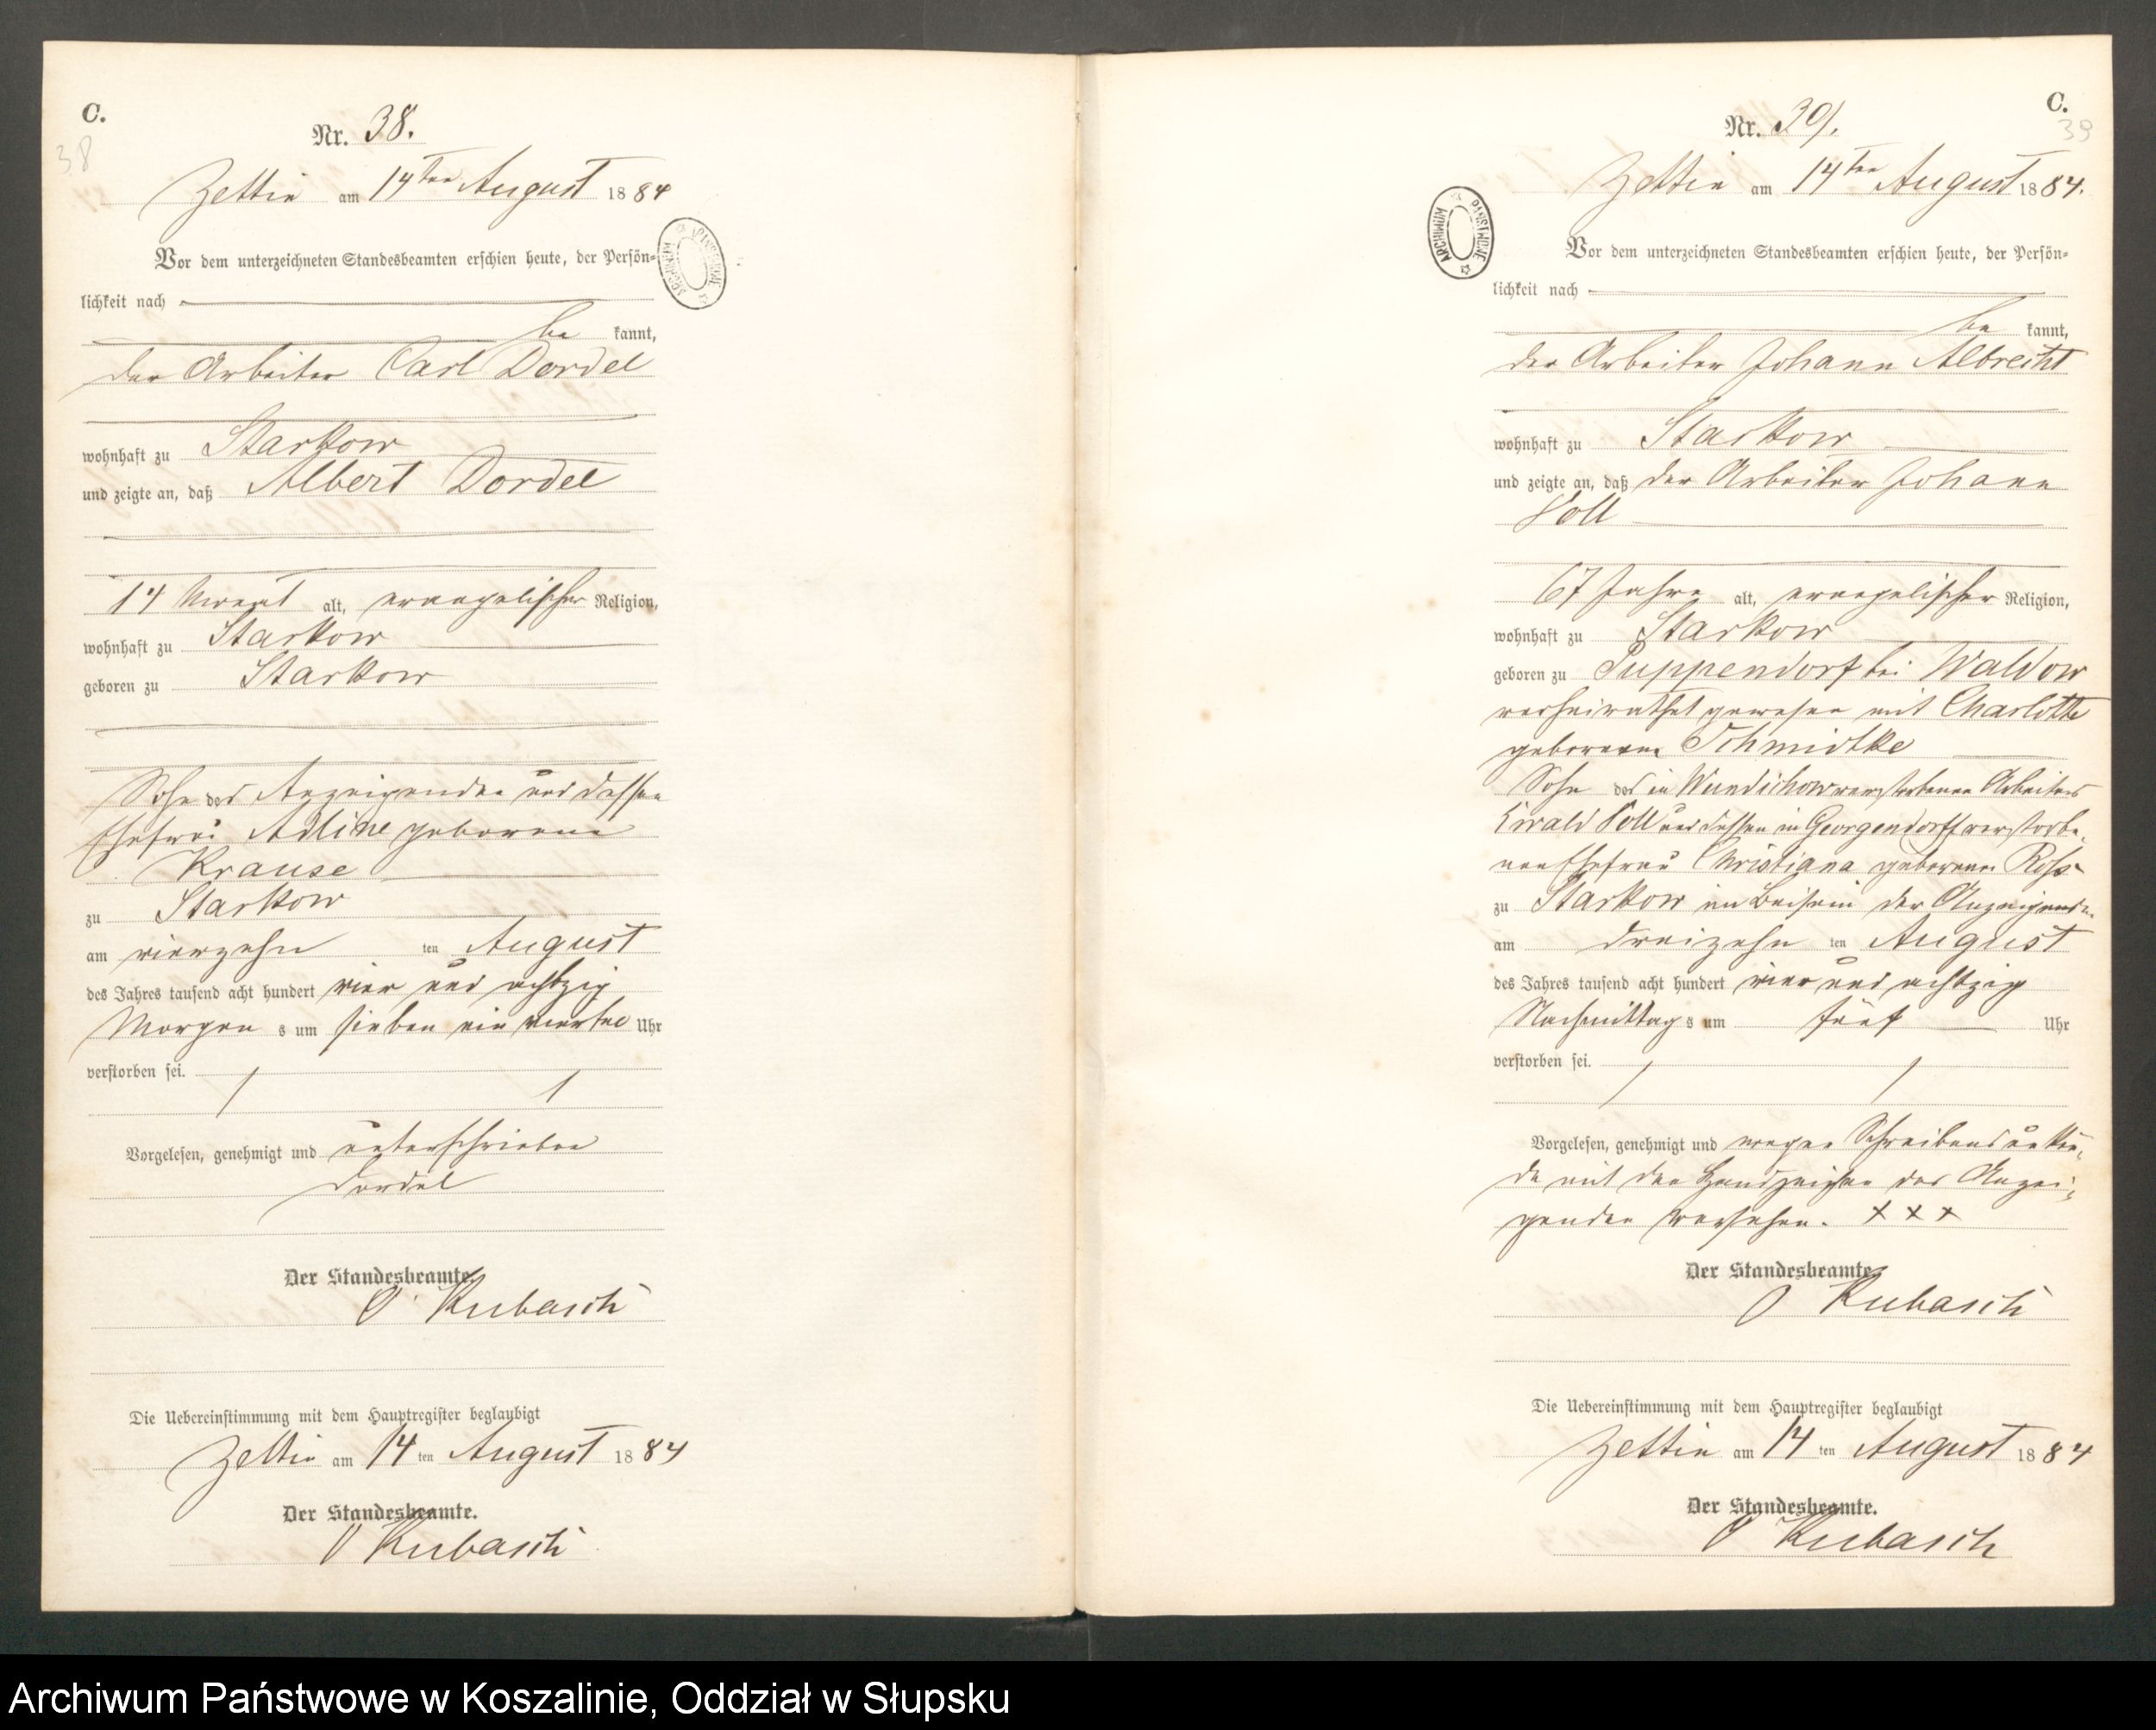 C.
38
Nr. 38.
Zettin am 14ten August 1884
Vor dem unterzeichneten Standesbeamten erschien heute, der Persön-
lichkeit nach
be kannt,
der Arbeiter Carl Dordel
wohnhaft zu Starkow
und zeigte an, daß Albert Dordel
14 alt, evangelischer Religion,
wohnhaft zu Starkow
geboren zu Starkow
Sohn des Anzeigenden und dessen
Ehefrau Adline geborene
Krause
zu Starkow
am vierzehn ten August
des Jahres tausend acht hundert vier und achtzig
Morgen s um sieben ein viertel Uhr
verstorben sei.
Vorgelesen, genehmigt und unterschrieben
Dordel
Der Standesbeamte
Kubasch
Die Uebereinstimmung mit dem Hauptregister beglaubigt
Zettin am 14 ten August 1884
Der Standesbeamte.
Kubasch
ARCHIWUM PAŃSTWOWE
C.
39
Nr. 39.
Zettin am 14ten August 1884.
Vor dem unterzeichneten Standesbeamten erschien heute, der Persön-
lichkeit nach
be kannt,
der Arbeiter Johann Albrecht
wohnhaft zu Starkow
und zeigte an, daß der Arbeiter Johann
Voll
67 Jahre alt, evangelischer Religion,
wohnhaft zu Starkow
geboren zu Puppendorf bei Waldow
verheirathet gewesen mit Charlotte
geborenen Schmidtke
Sohn des in Wundichow verstorbenen Arbeiters
Ewald Voll und dessen in Georgendorf verstorbe-
nen Ehefrau Christiana geborenen
zu Starkow im Beisein der Anzeigenden
am dreizehn ten August
des Jahres tausend acht hundert vier und achtzig
Nachmittag s um fünf Uhr
verstorben sei.
Vorgelesen, genehmigt und wegen Schreibensunkun-
de mit den Handzeichen des Anzei-
genden versehen. x x x
Der Standesbeamte
Kubasch
Die Uebereinstimmung mit dem Hauptregister beglaubigt
Zettin am 14 ten August 1884
Der Standesbeamte.
Kubasch
ARCHIWUM PAŃSTWOWE
Archiwum Państwowe w Koszalinie, Oddział w Słupsku